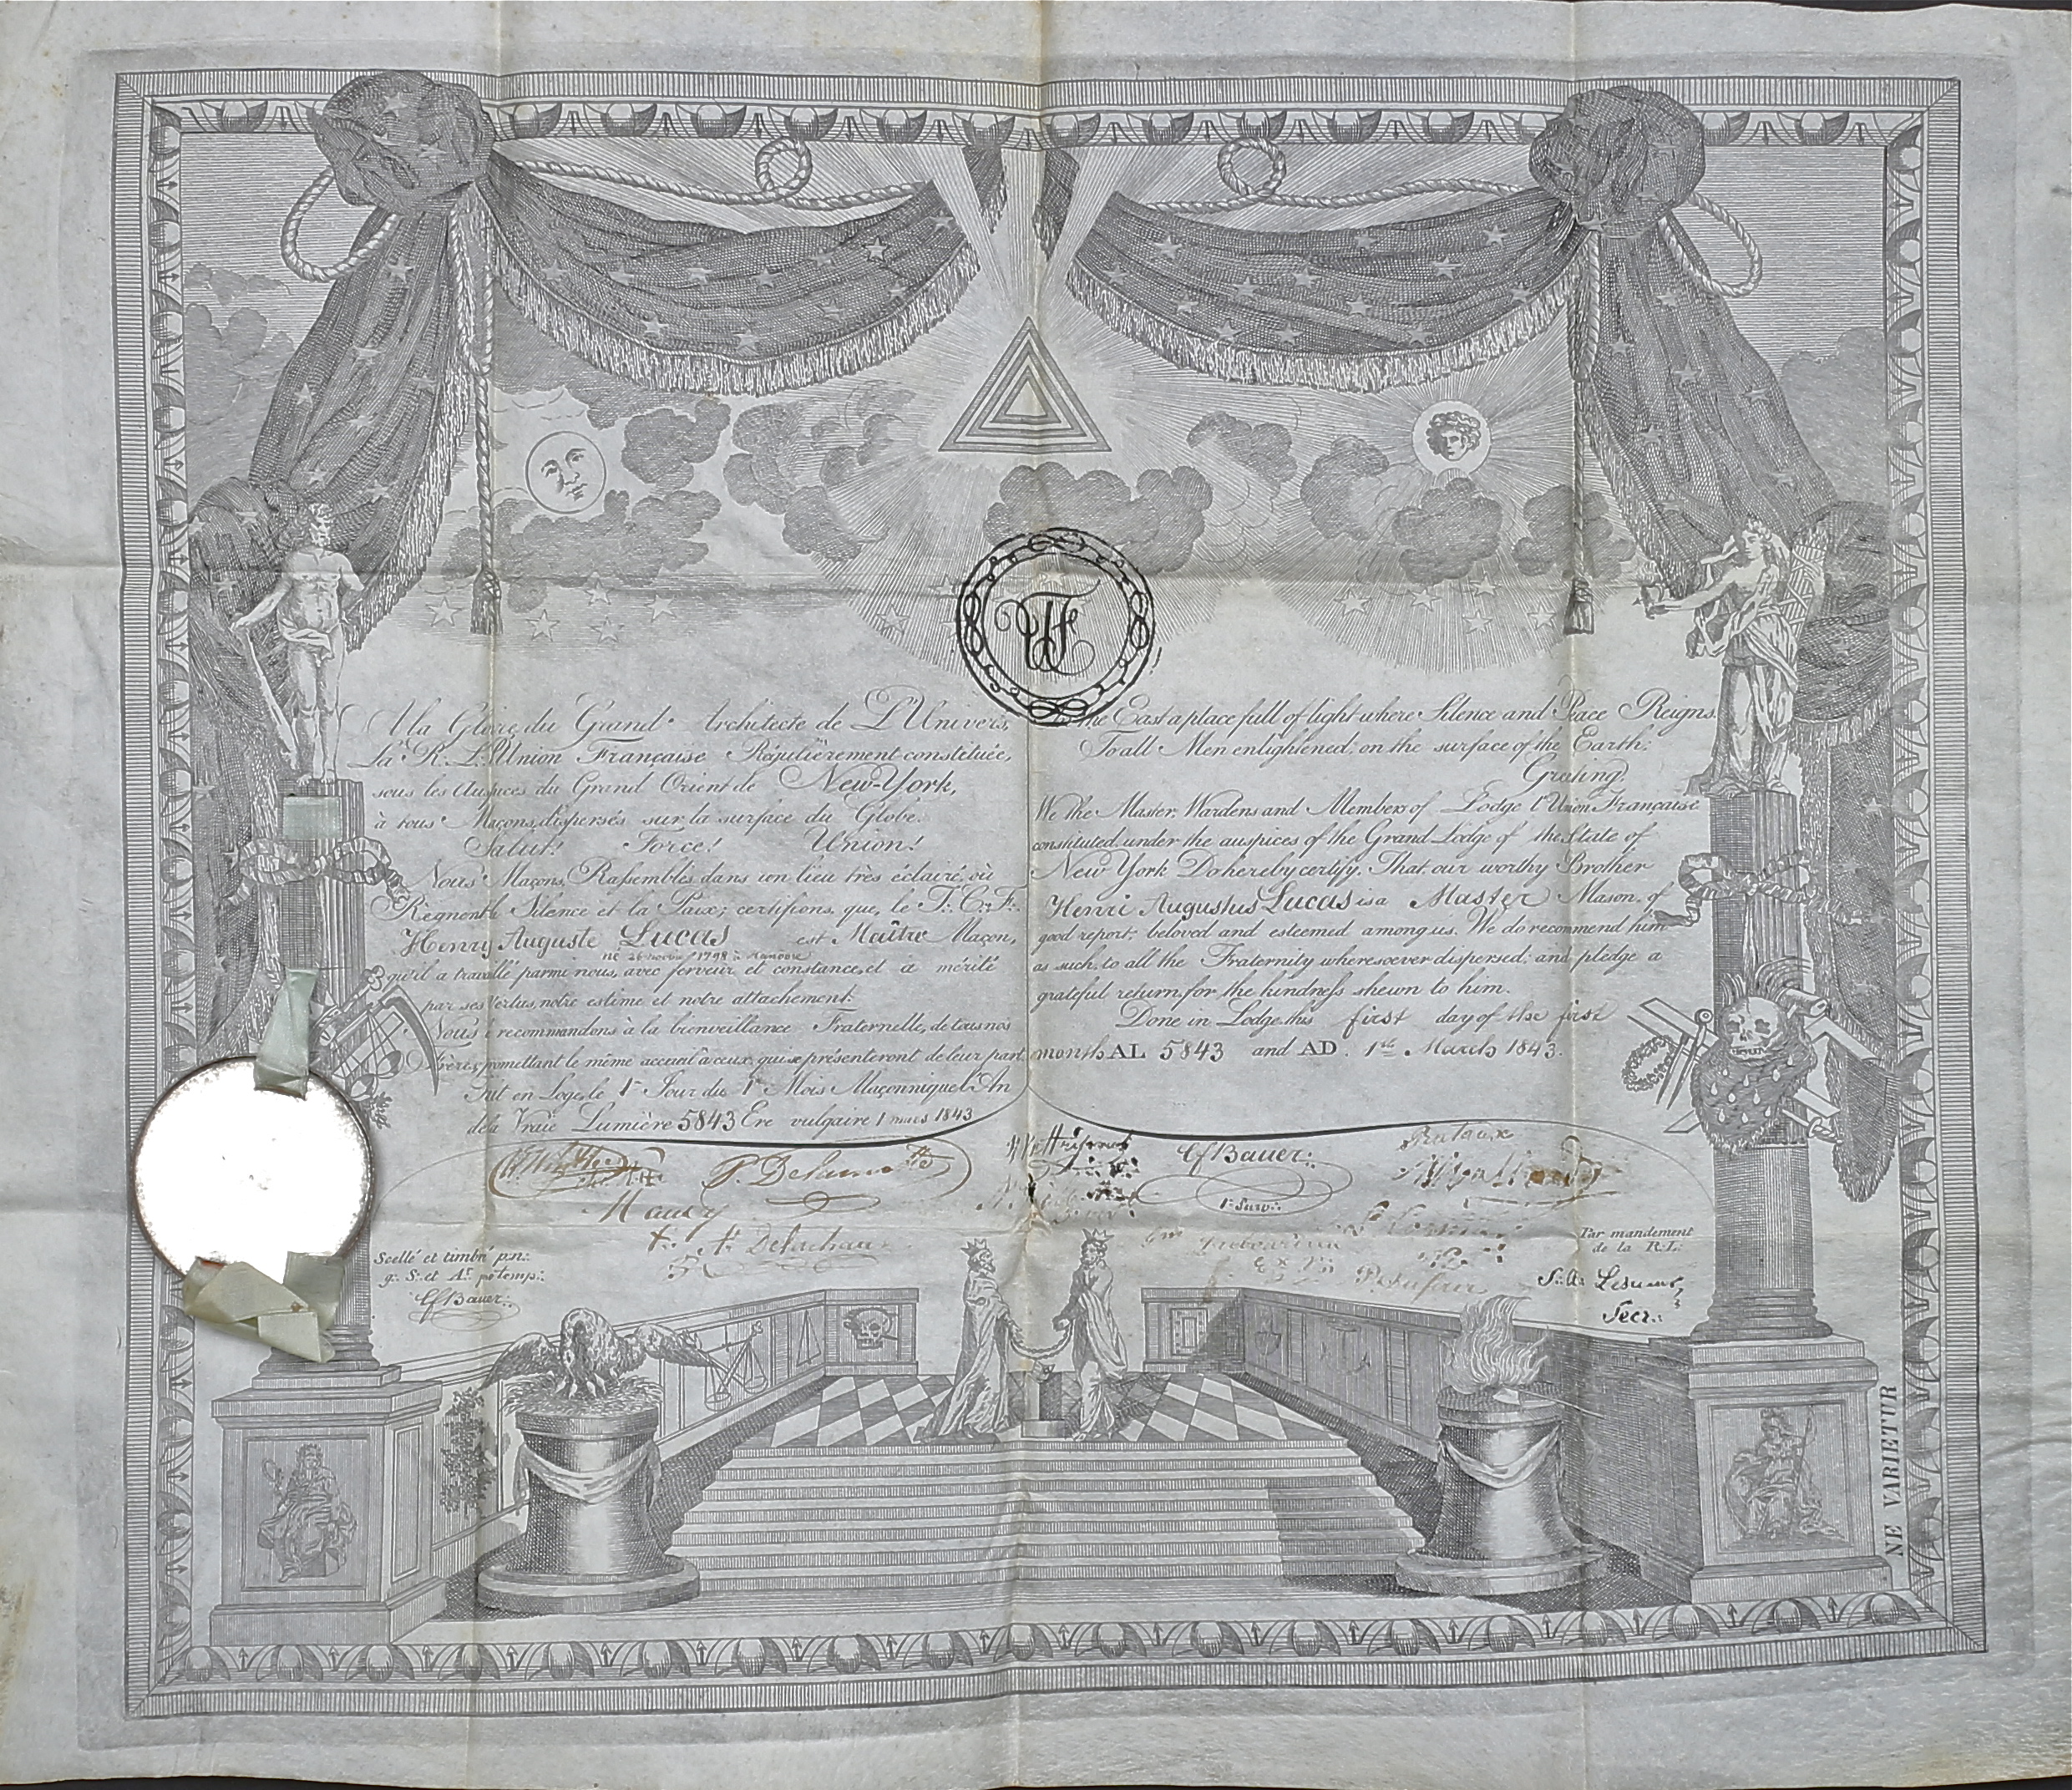 UF
A la Gloire du Grand Architecte de L'Univers,
La R. L. l'Union Française Régulièrement constituée,
sous les Auspices du Grand Orient de New-York,
à tous Maçons, dispersés sur la surface du Globe.
Salut! Force! Union!
Nous Maçons, Rassemblés dans un lieu très éclairé, où
Règnent le Silence et la Paix; certifions, que, le T.: C.: F.:
Henry Auguste Lucas est Maître Maçon,
né 26 1798 à
qu'il a travaillé parmi nous, avec ferveur et constance, et a mérité
par ses Vertus, notre estime et notre attachement.
Nous recommandons à la bienveillance Fraternelle, de tous nos
Frères, promettant le même accueil à ceux, qui se présenteront de leur part
Fait en Loge, le 1r Jour du 1r Mois Maçonnique l'An
de la Vraie Lumière 5843 Ere vulgaire 1 mars 1843
To the East a place full of light where Silence and Peace Reigns.
To all Men enlightened; on the surface of the Earth;
Greeting.
We the Master, Wardens and Members of Lodge l'Union Française
constituted under the auspices of the Grand Lodge of the State of
New York Do hereby certify, That, our worthy Brother
Henri Augustus Lucas is a Master Mason, of
good report, beloved and esteemed among us. We do recommend him
as such, to all the Fraternity wheresoever dispersed; and pledge a
grateful return, for the kindness shewn to him.
Done in Lodge, this first day of the first
month AL 5843 and AD. 1st March 1843.
P. Delamotte
CfBauer.:
1r Surv.:
Par mandement
de la R.L.
Secr.:
Scellé et timbré p.n.:
g: S: et Ar. p. temp.:
CfBauer.:
NE VARIETUR